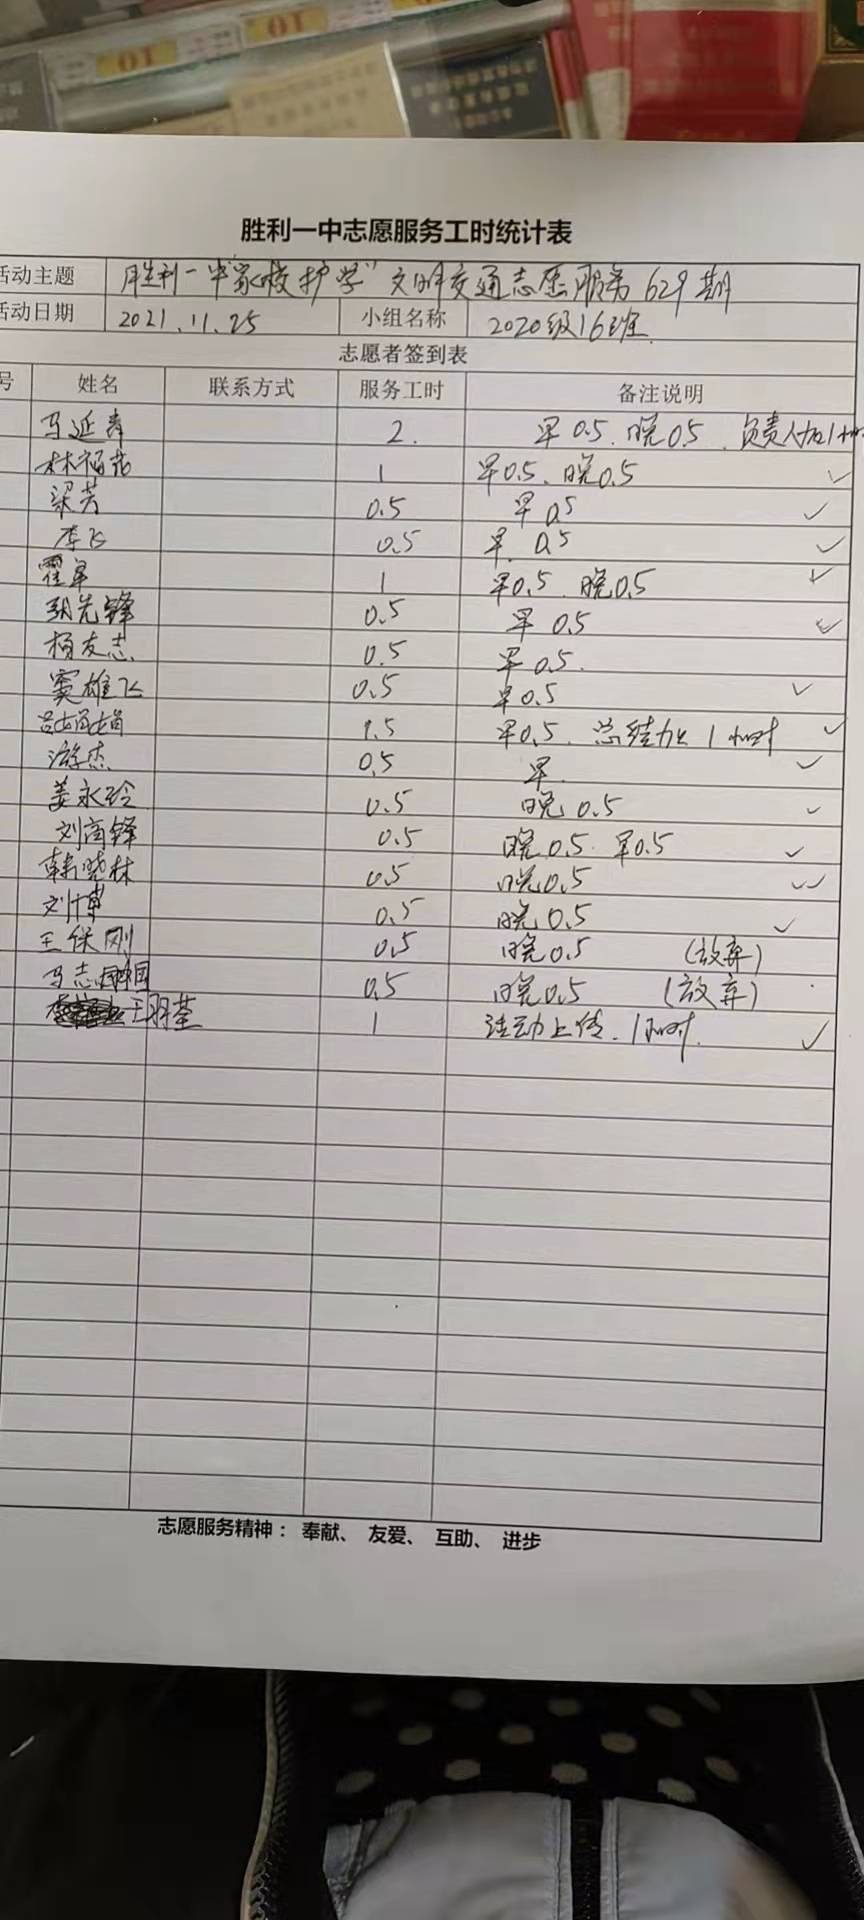 胜利一中志愿服务工时统计表
活动主题 胜利一中"家校护学"文明交通志愿服务629期
活动日期 2021.11.25 小组名称 2020级16班
志愿者签到表
号 姓名 联系方式 服务工时 备注说明
马延青 2. 早0.5.晚0.5.负责人加1小时
林福花 1 早0.5、晚0.5 ✓
梁芳 0.5 早0.5 ✓
李飞 0.5 早.0.5 ✓
霍军 1 早0.5.晚0.5 ✓
胡先锋 0.5 早0.5 ✓
杨友志 0.5 早0.5.
窦雄飞 0.5 早0.5 ✓
吕娟娟 1.5 早0.5.总结加1小时 ✓
游杰 0.5 早. ✓
姜永玲 0.5 晚0.5 ✓
刘高锋 0.5 晚0.5.早0.5 ✓
韩晓林 0.5 晚0.5 ✓✓
刘博 0.5 晚0.5 ✓
王保刚 0.5 晚0.5 (放弃)
马志国 0.5 晚0.5 (放弃)
王羽荃 1 活动上传.1小时. ✓
志愿服务精神：奉献、友爱、互助、进步